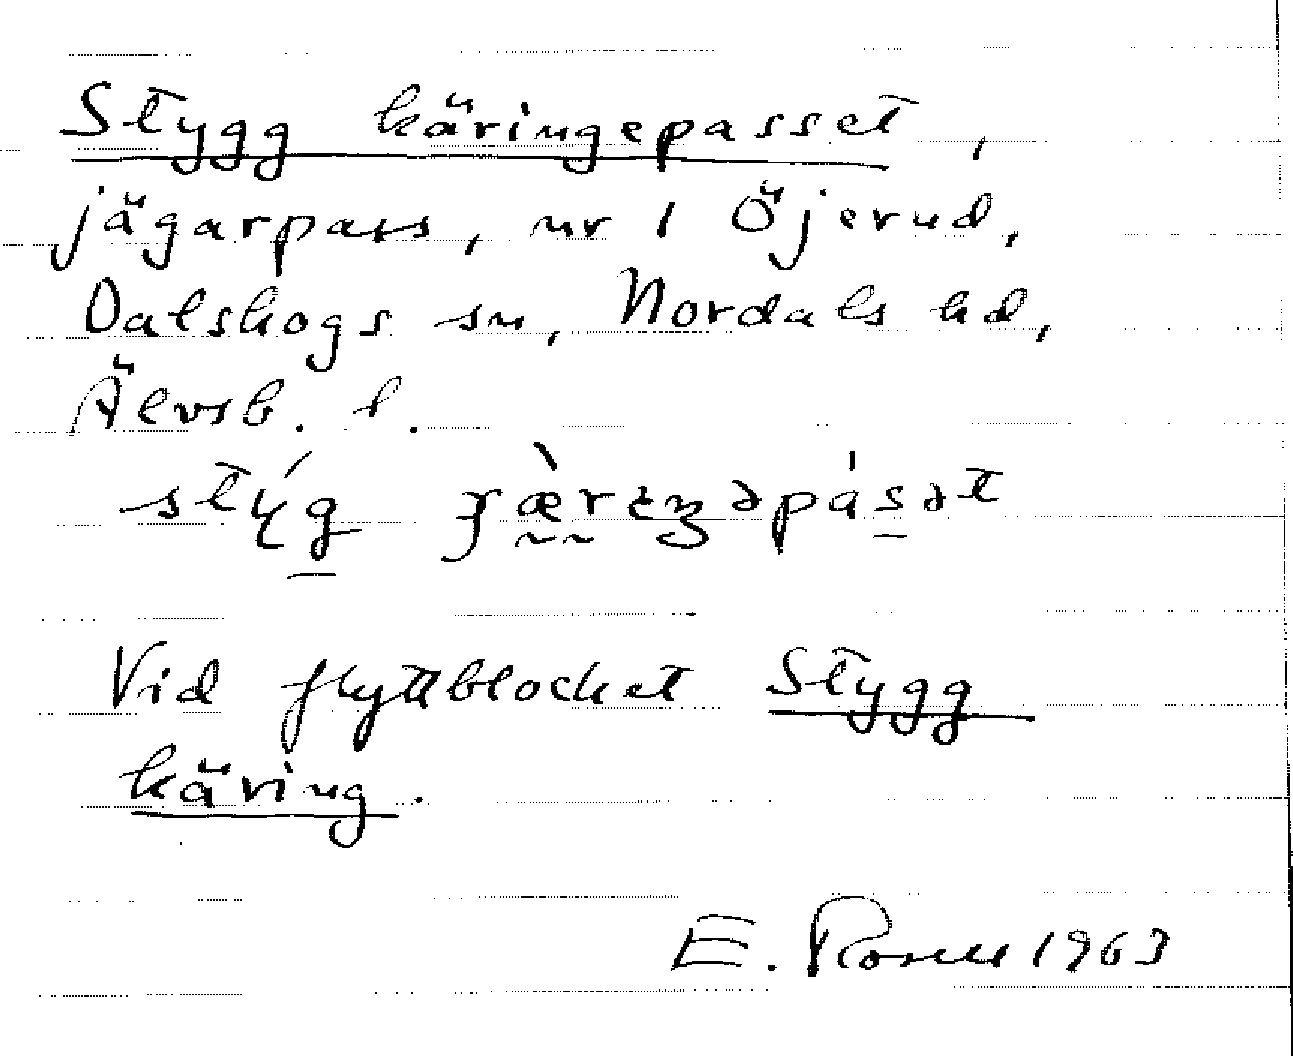 Stygg käringepasset,
jägarpass, nr 1 Öjerud,
Dalskogs sn, Nordals hd,
Älvsb. l.
Vid flyttblocket Stygg
käring.
E. Rosell 1963